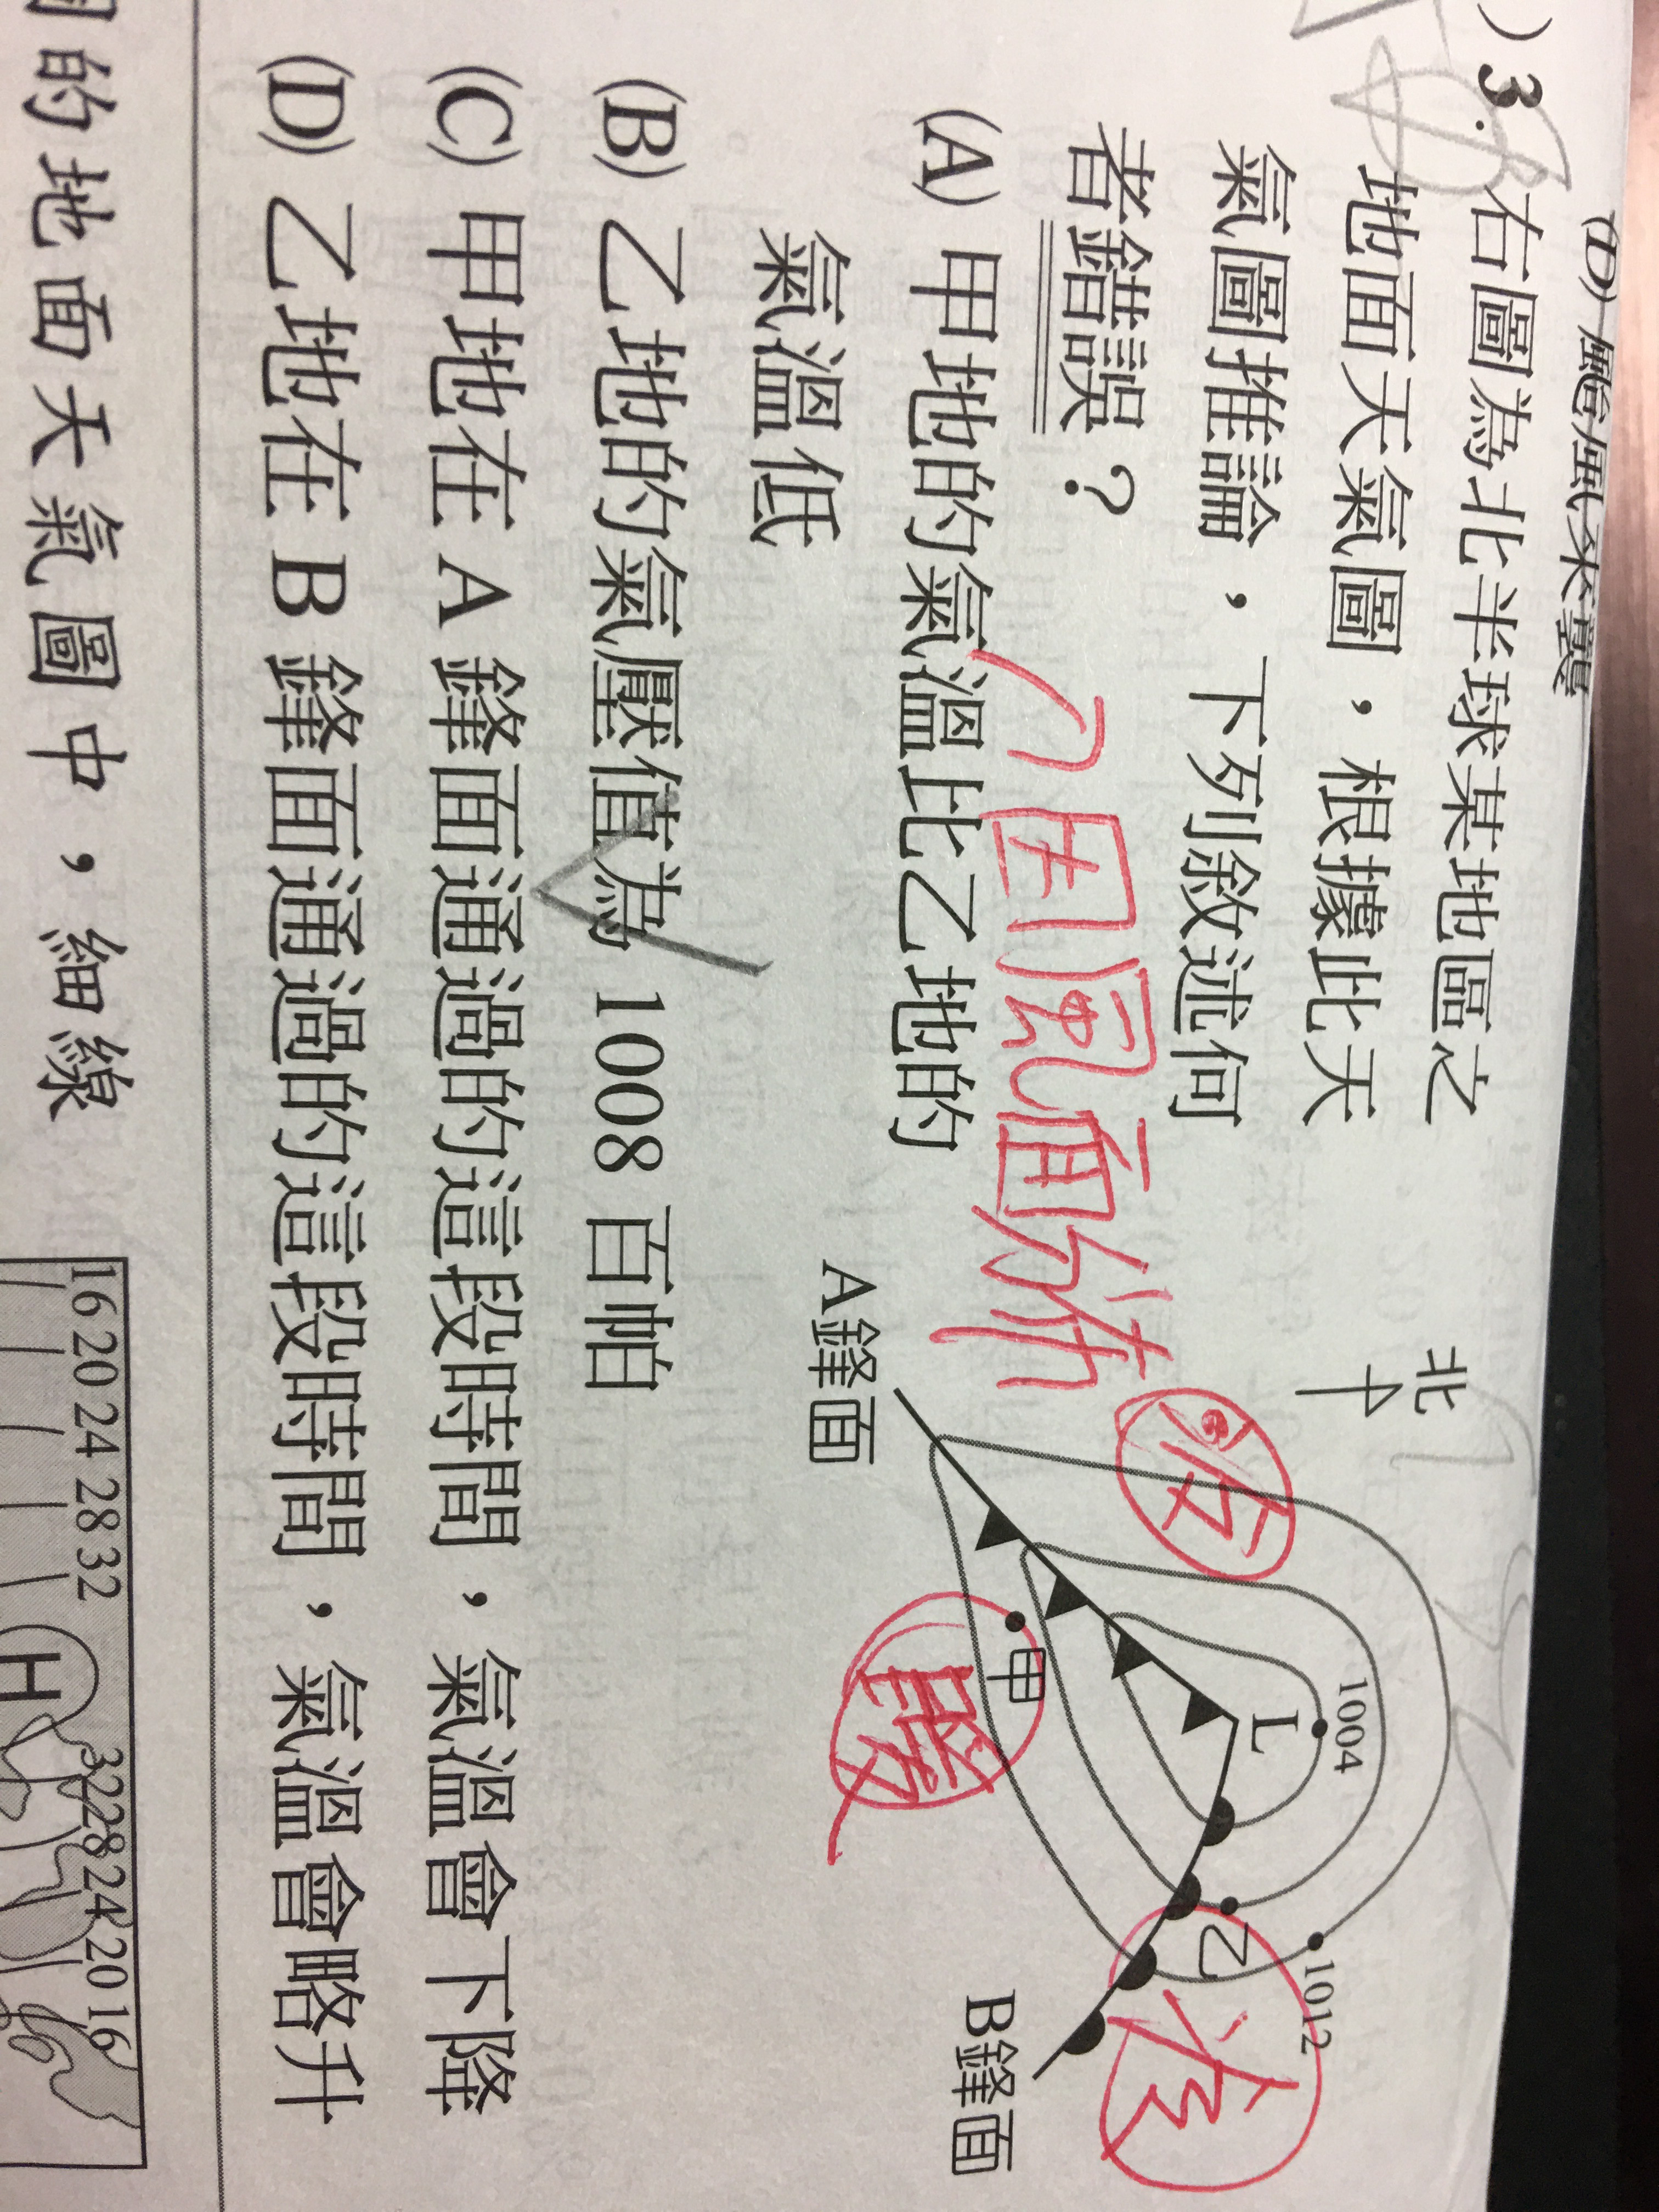 (D) 颱風來襲
)3. 右圖為北半球某地區之
地面天氣圖，根據此天
氣圖推論，下列敘述何
者錯誤？
(A) 甲地的氣溫比乙地的
氣溫低
(B) 乙地的氣壓值為 1008 百帕
(C) 甲地在 A 鋒面通過的這段時間，氣溫會下降
(D) 乙地在 B 鋒面通過的這段時間，氣溫會略升
北
1004
L
1012
甲
乙
A鋒面
B鋒面
冷
暖
冷
的地面天氣圖中，細線
16 20 24 28 32
32 28 24 20 16
H